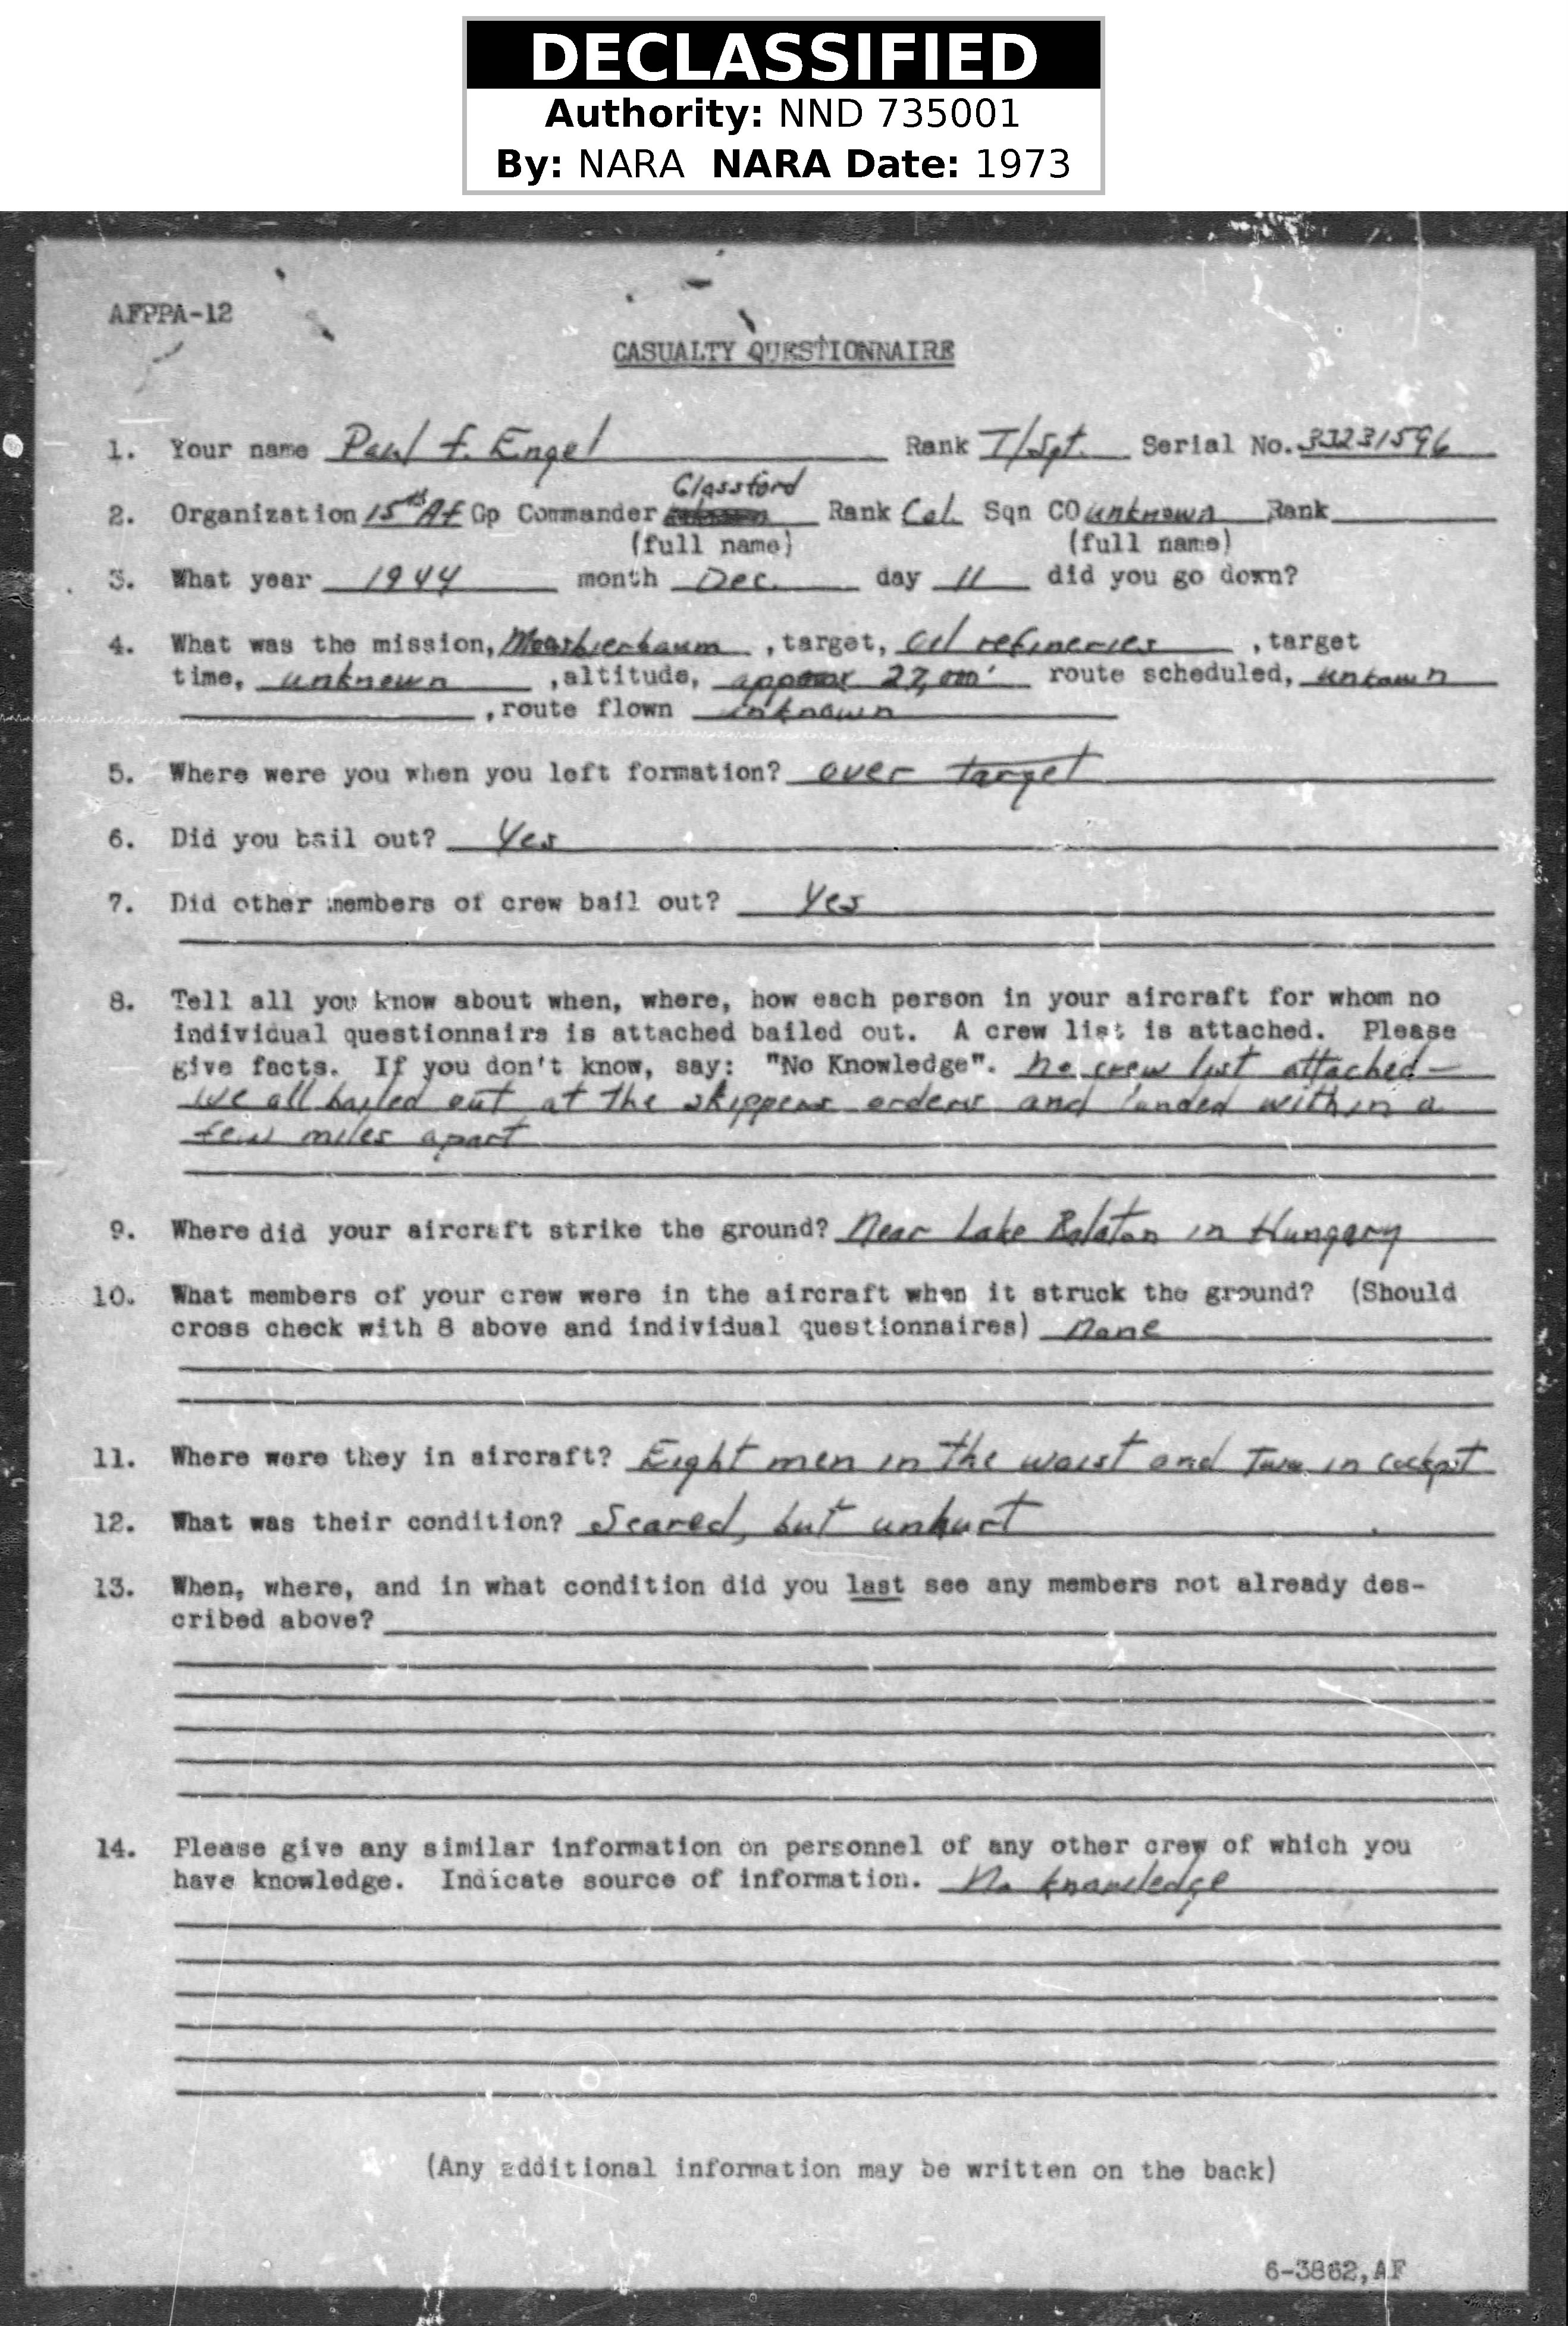 DECLASSIFIED
Authority: NND 735001
By: NARA NARA Date: 1973
AFPPA-12
CASUALTY QUESTIONNAIRE
1. Your name Paul F. Engel Rank T/Sgt. Serial No. 33231596
Glassford
2. Organization 15th AF Gp Commander Rank Col. Sqn CO unknown Rank
(full name) (full name)
3. What year 1944 month Dec. day 11 did you go down?
4. What was the mission, , target, oil refineries , target
time, unknown , altitude, approx 27,000' route scheduled, unknown
, route flown unknown
5. Where were you when you left formation? over target
6. Did you bail out? Yes
7. Did other members of crew bail out? Yes
8. Tell all you know about when, where, how each person in your aircraft for whom no
individual questionnaire is attached bailed out. A crew list is attached. Please
give facts. If you don't know, say: "No Knowledge". No crew list attached—
we all bailed out at the skippers orders and landed within a
few miles apart
9. Where did your aircraft strike the ground? Near Lake Balaton in Hungary
10. What members of your crew were in the aircraft when it struck the ground? (Should
cross check with 8 above and individual questionnaires) None
11. Where were they in aircraft? Eight men in the waist and Two in cockpit
12. What was their condition? Scared, but unhurt
13. When, where, and in what condition did you last see any members not already des-
cribed above?
14. Please give any similar information on personnel of any other crew of which you
have knowledge. Indicate source of information. No knowledge
(Any additional information may be written on the back)
6-3862,AF